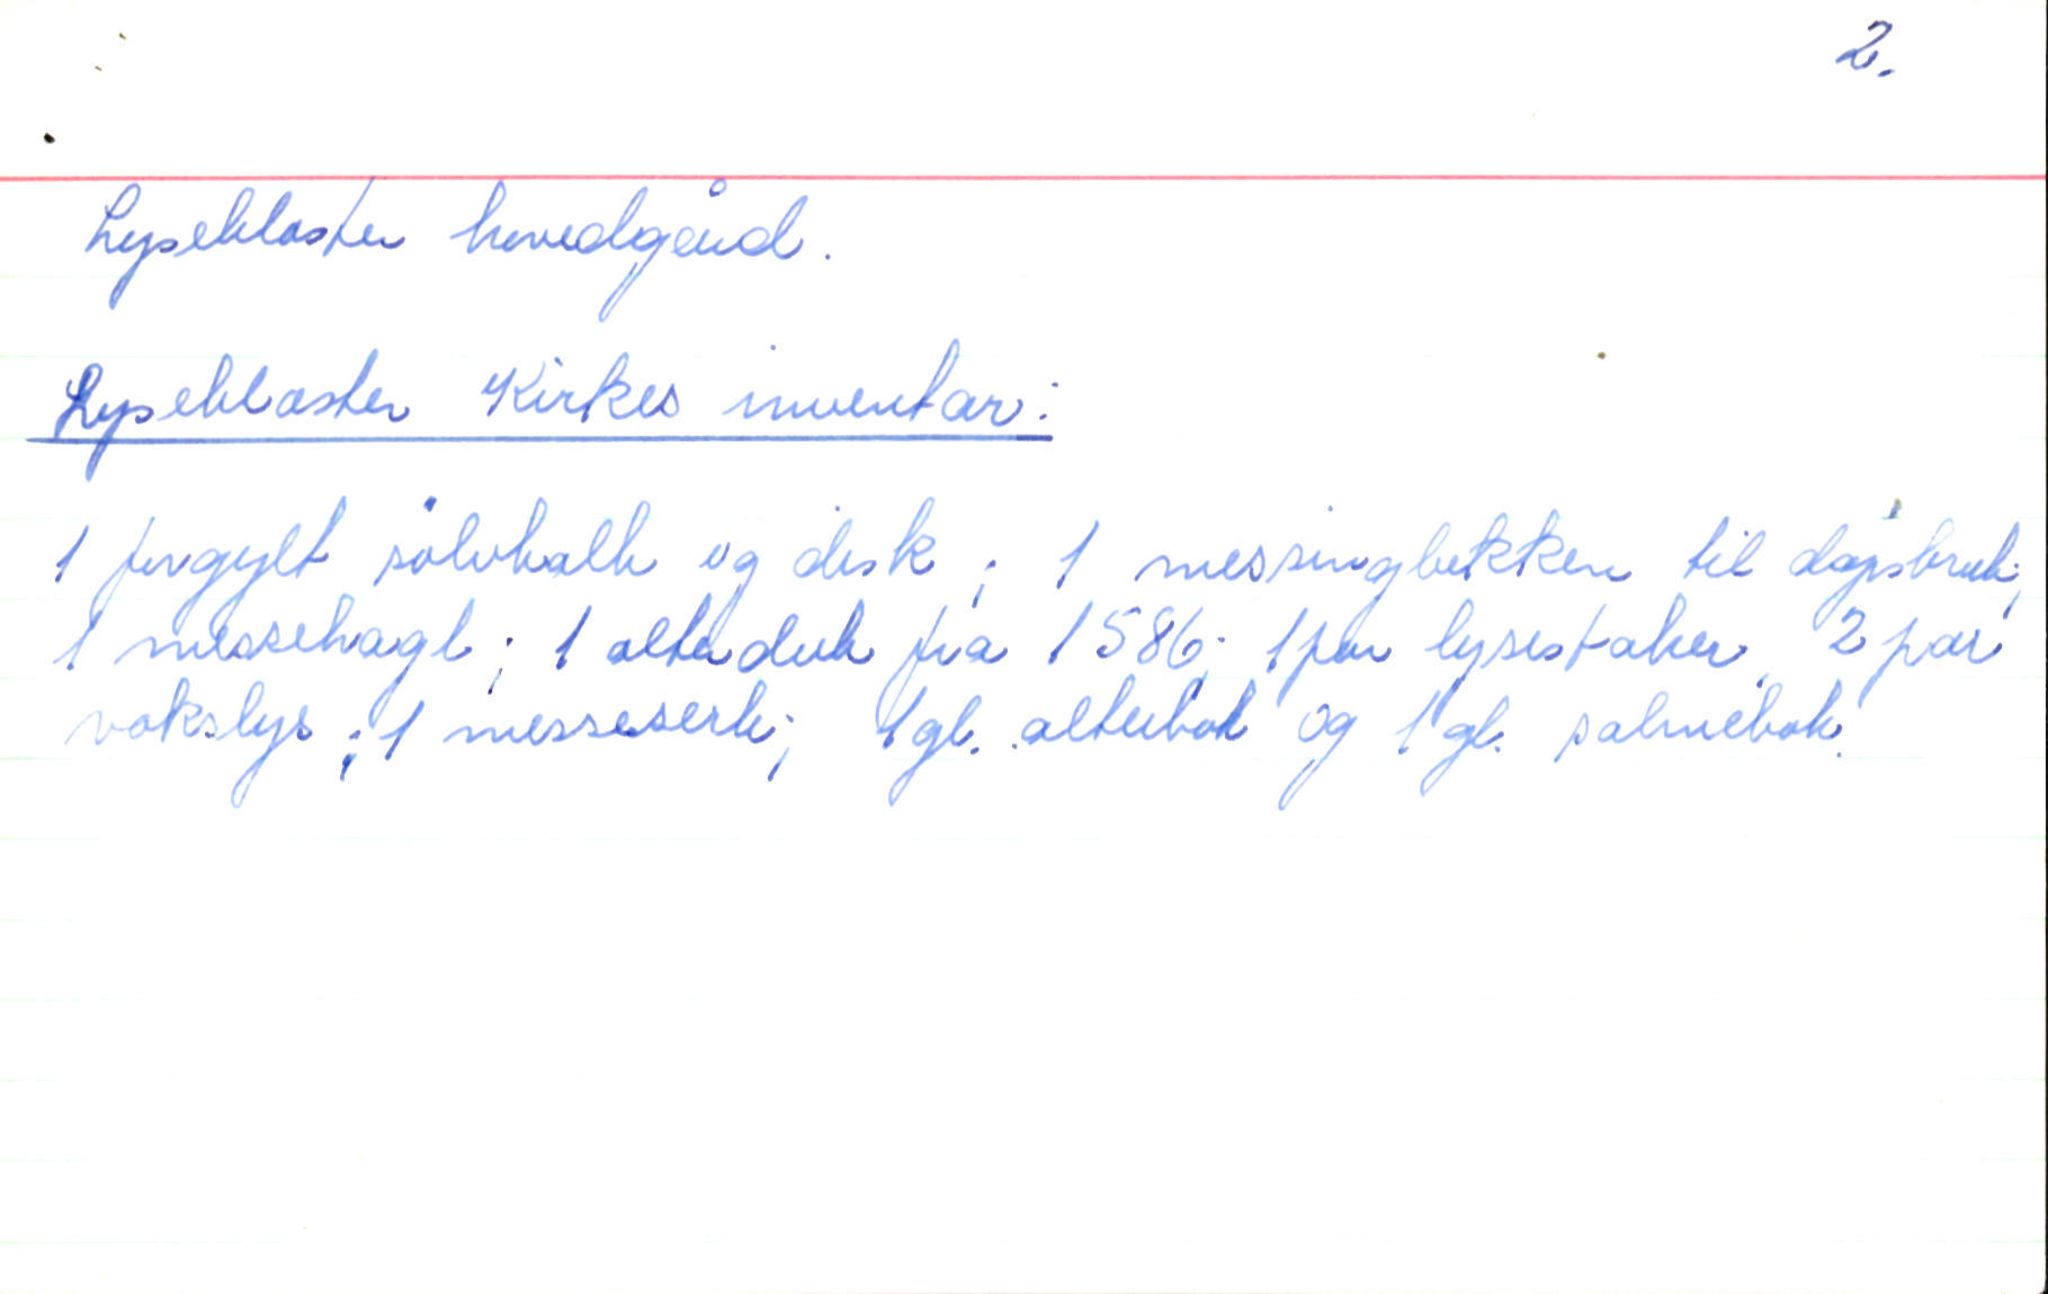 2.
Lysekloster hovedgård.
Lysekloster Kirkes inventar:
1 forgylt sölvkalk og disk; 1 messingbekken til dåpsbruk;
1 messehagl; 1 alterduk fra 1586; 1 par lysestaker, 2 par
vokslys; 1 messeserk; 1 gl. alterbok og 1 gl. salmebok.